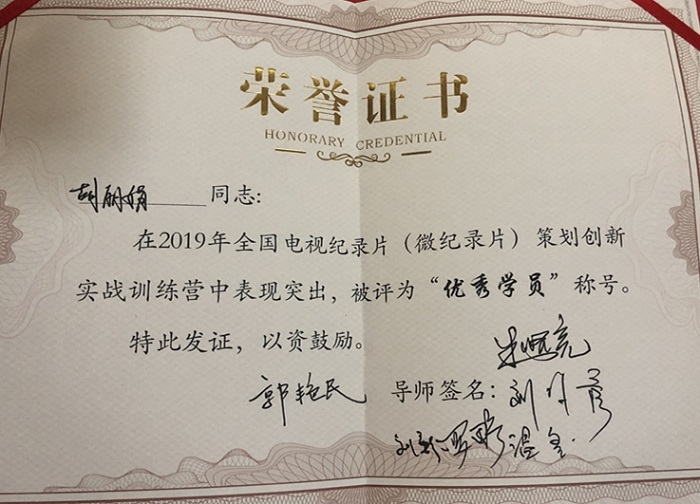 荣誉证书
HONORARY CREDENTIAL
胡丽娟 同志:
在2019年全国电视纪录片（微纪录片）策划创新
实战训练营中表现突出，被评为“优秀学员”称号。
特此发证，以资鼓励。
郭艳民 导师签名: